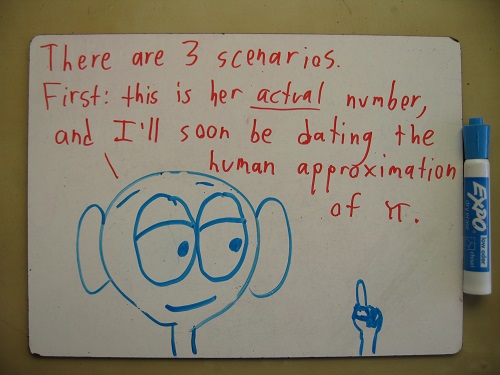 There are 3 scenarios.
First: this is her actual number,
and I'll soon be dating the
human approximation
of π.
EXPO